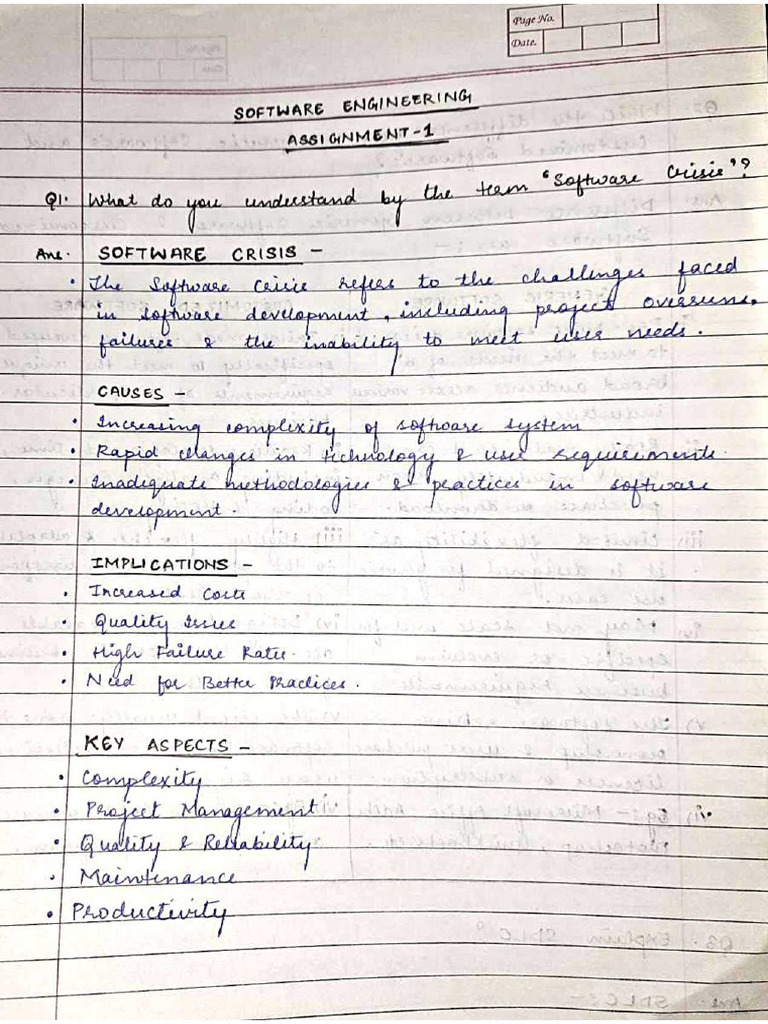 Page No.
Date.
SOFTWARE ENGINEERING
ASSIGNMENT-1
Q1. What do you understand by the term "Software Crisis"?
Ans. SOFTWARE CRISIS -
• The Software Crisis refers to the challenges faced
in software development, including project overruns,
failures & the inability to meet user needs.
CAUSES -
• Increasing complexity of software system
• Rapid changes in technology & user requirements.
• Inadequate methodologies & practices in software
development.
IMPLICATIONS -
• Increased Costs
• Quality Issues
• High Failure Rates.
• Need for Better Practices.
KEY ASPECTS -
• Complexity
• Project Management
• Quality & Reliability
• Maintenance
• Productivity